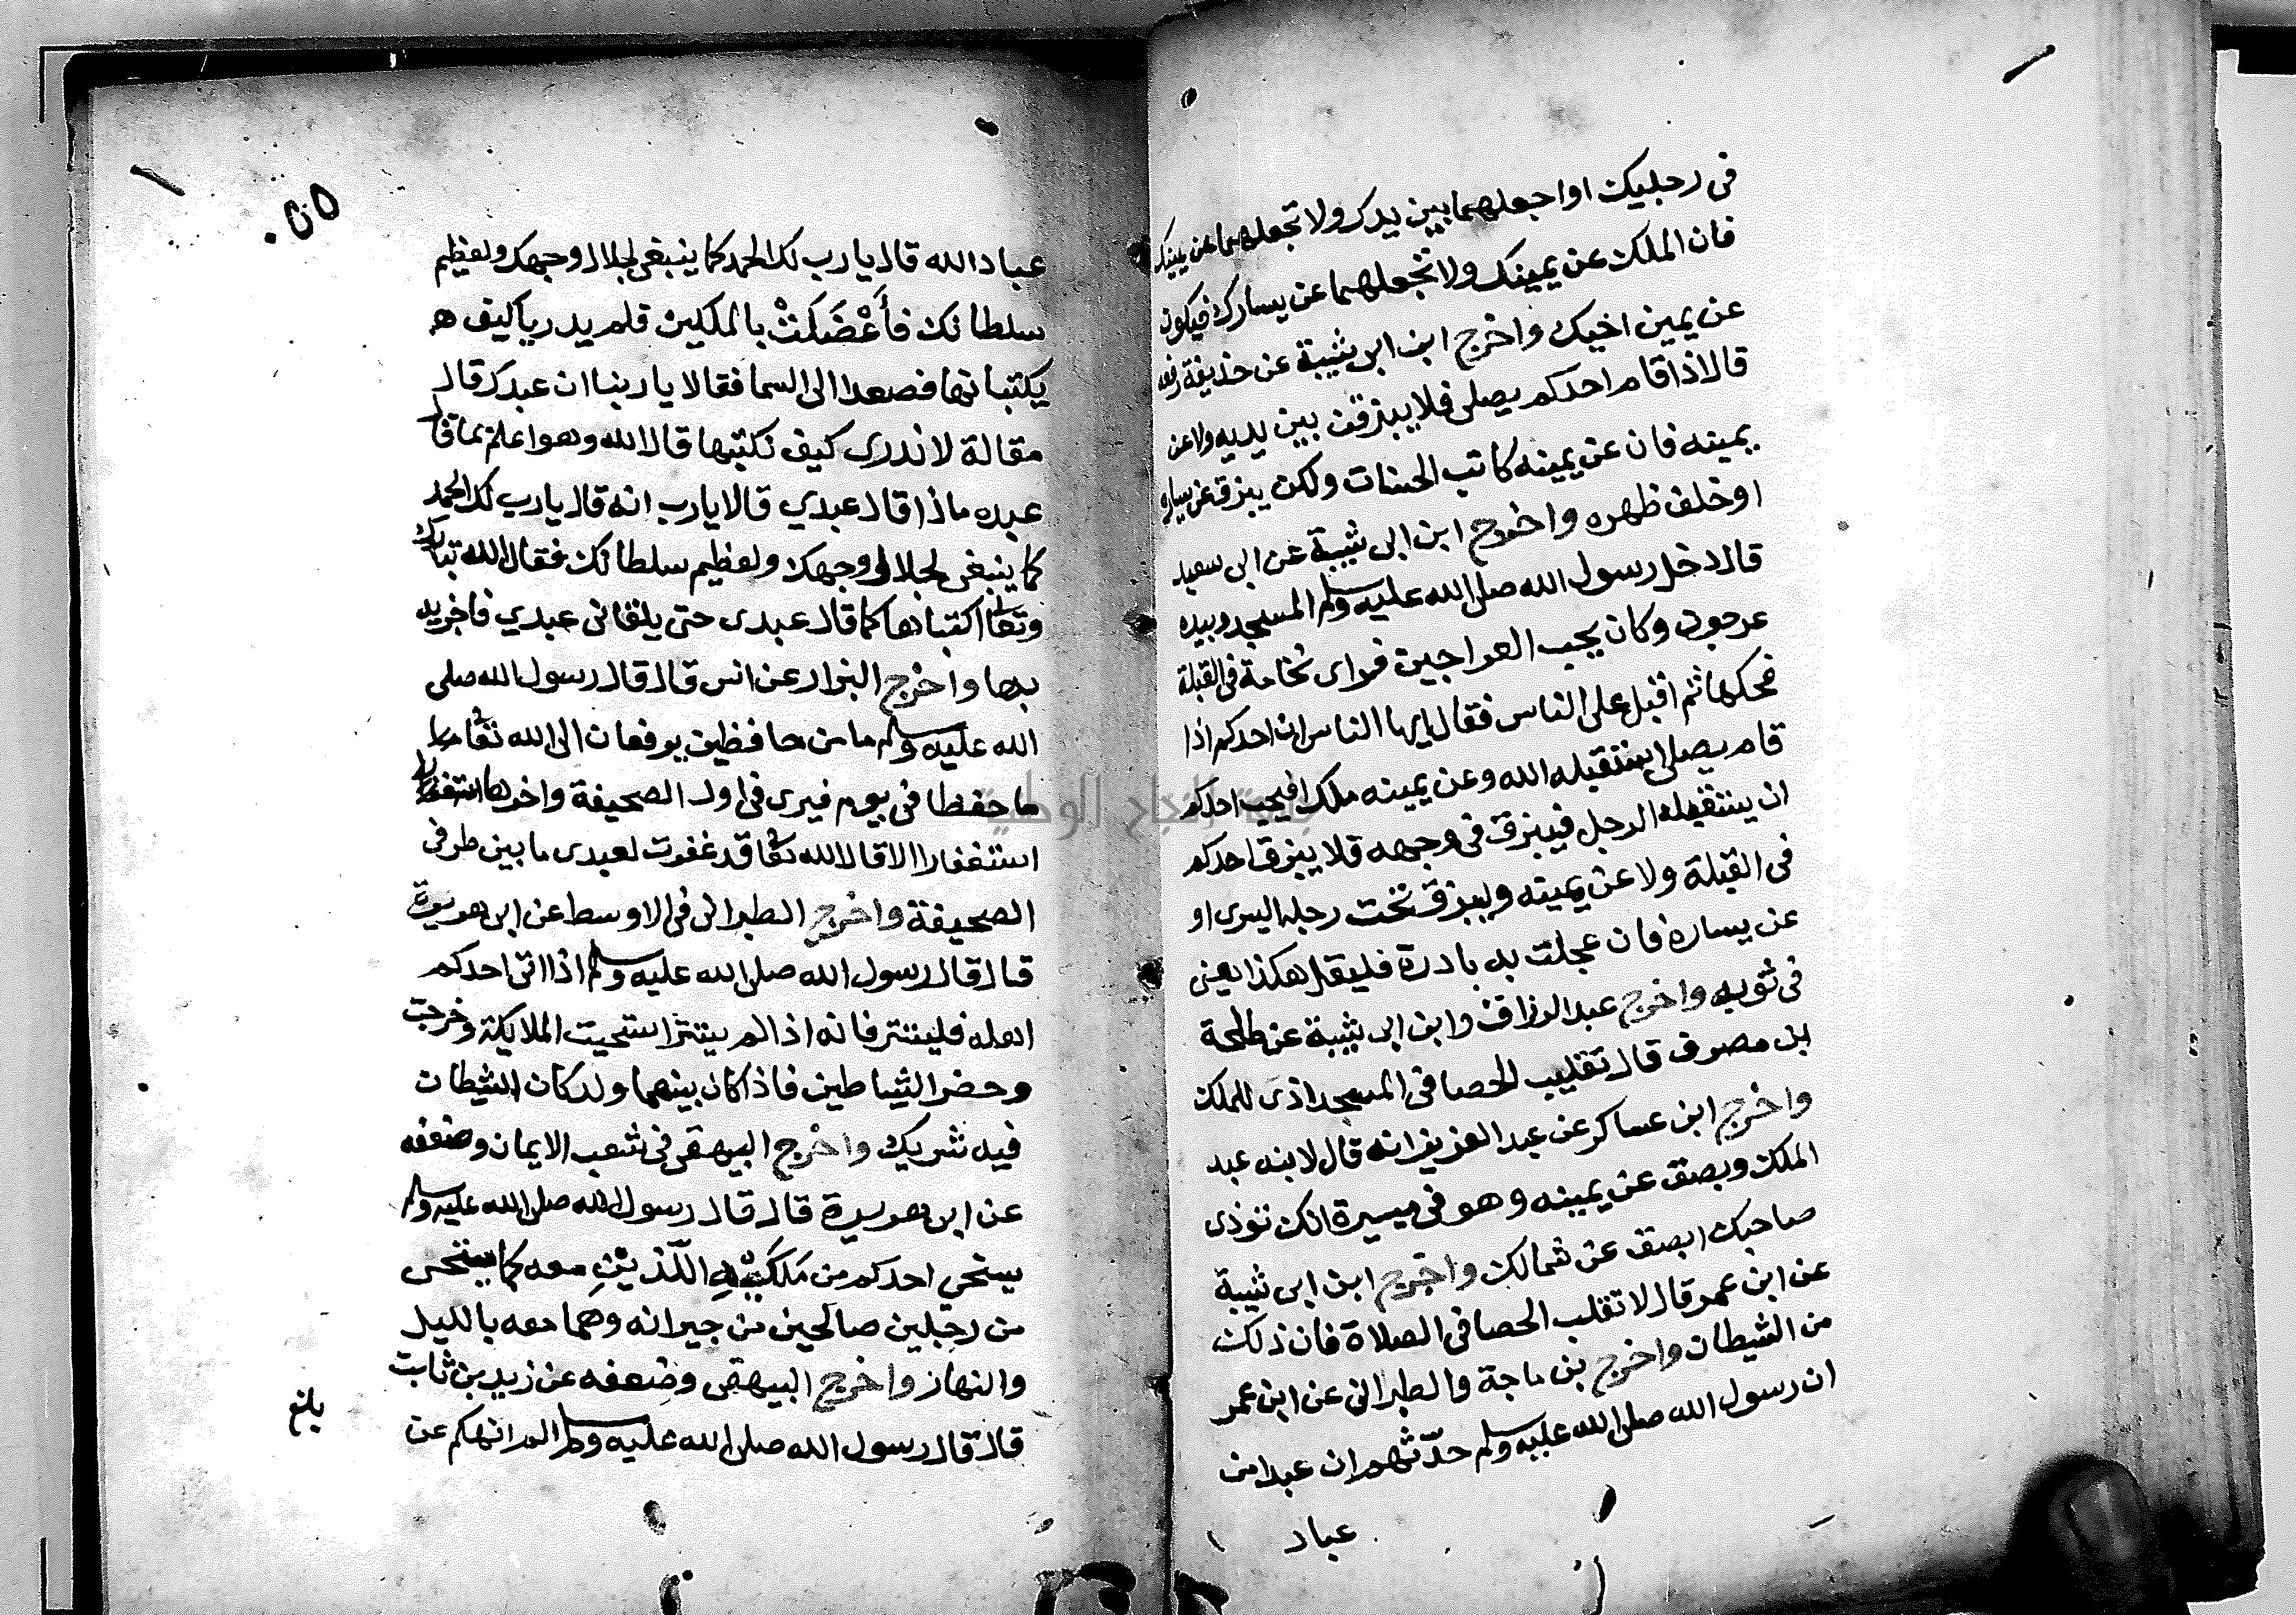 في رجليك او اجعلهما بين يدك ولا تجعلهما عن يمينك
فان الملك عن يمينك ولا تجعلهما عن يسارك فيكون
عن يمين اخيك واخرج ابن ابي شيبة عن حذيفة رفعه
قال اذا قام احدكم يصلي فلا يبزقن بين يديه ولا عن
يمينه فان عن يمينه كاتب الحسنات ولكن يبزق عن يساره
او خلف ظهره واخرج ابن ابي شيبة عن ابي سعيد
قال دخل رسول الله صلى الله عليه وسلم المسجد وبيده
عرجون وكان يحب العراجين فراى نخامة في القبلة
فحكها ثم اقبل على الناس فقال ايها الناس ان احدكم اذا
قام يصلي استقبله الله وعن يمينه ملك افيحب احدكم
ان يستقبله الرجل فيبزق في وجهه فلا يبزق احدكم
في القبلة ولا عن يمينه وليبزق تحت رجله اليسرى او
عن يساره فان عجلت به بادرة فليقل هكذا يعني
في ثوبه واخرج عبد الرزاق وابن ابي شيبة عن طلحة
بن مصرف قال تقليب الحصا في المسجد اذى للملك
واخرج ابن عساكر عن عبد العزيز انه قال لابنه عبد
الملك وبصق عن يمينه وهو في مسيرة انك تؤذى
صاحبك ابصق عن شمالك واخرج ابن ابي شيبة
عن ابن عمر قال لا تقلب الحصا في الصلاة فان ذلك
من الشيطان واخرج بن ماجة والطبراني عن ابن عمر
ان رسول الله صلى الله عليه وسلم حدثهم ان عبدا من
عباد
٥٥
عباد الله قال يا رب لك الحمد كما ينبغي لجلال وجهك ولعظيم
سلطانك فأعْضَلَتْ بالملكين فلم يدريا كيف
يكتبانها فصعدا الى السما فقالا يا ربنا ان عبدك قال
مقالة لا ندري كيف نكتبها قال الله وهو اعلم بما قال
عبده ماذا قال عبدي قالا يا رب انه قال يا رب لك الحمد
كما ينبغي لجلال وجهك ولعظيم سلطانك فقال الله تبارك
وتعالى اكتباها كما قال عبدى حتى يلقاني عبدي فاجزيه
بها واخرج البزار عن انس قال قال رسول الله صلى
الله عليه وسلم ما من حافظين يرفعان الى الله تعالى
ما حفظا في يوم فيرى في اول الصحيفة واخرها
استغفارا الا قال الله تعالى قد غفرت لعبدى ما بين طرفي
الصحيفة واخرج الطبراني في الاوسط عن ابي هريرة
قال قال رسول الله صلى الله عليه وسلم اذا اتى احدكم
اهله فليستتر فانه اذا لم يستتر استحيت الملايكة وخرجت
وحضر الشياطين فاذا كان بينهما ولد كان الشيطان
فيه شريك واخرج البيهقي في شعب الايمان وضعفه
عن ابي هريرة قال قال رسول الله صلى الله عليه وسلم
يستحي احدكم من مَلَكَيْهِ اللَّذَيْنِ معه كما يستحى
من رجلين صالحين من جيرانه وهما معه بالليل
والنهار واخرج البيهقي وضعفه عن زيد بن ثابت
قال قال رسول الله صلى الله عليه وسلم الم انهكم عن
بلغ
جامعة النجاح الوطنية